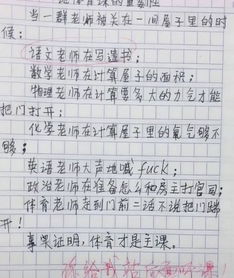 当一群老师被关在一间屋子里的时
候：
语文老师在写遗书；
数学老师在计算屋子的面积；
物理老师在计算要多大的力气才能
把门打开；
化学老师在计算屋子里的氧气够不
够；
英语老师大声地喊fuck；
政治老师在准备怎么和房主打官司；
体育老师走到门前二话不说把门踹
开！
事实证明，体育才是主课。
你给我站